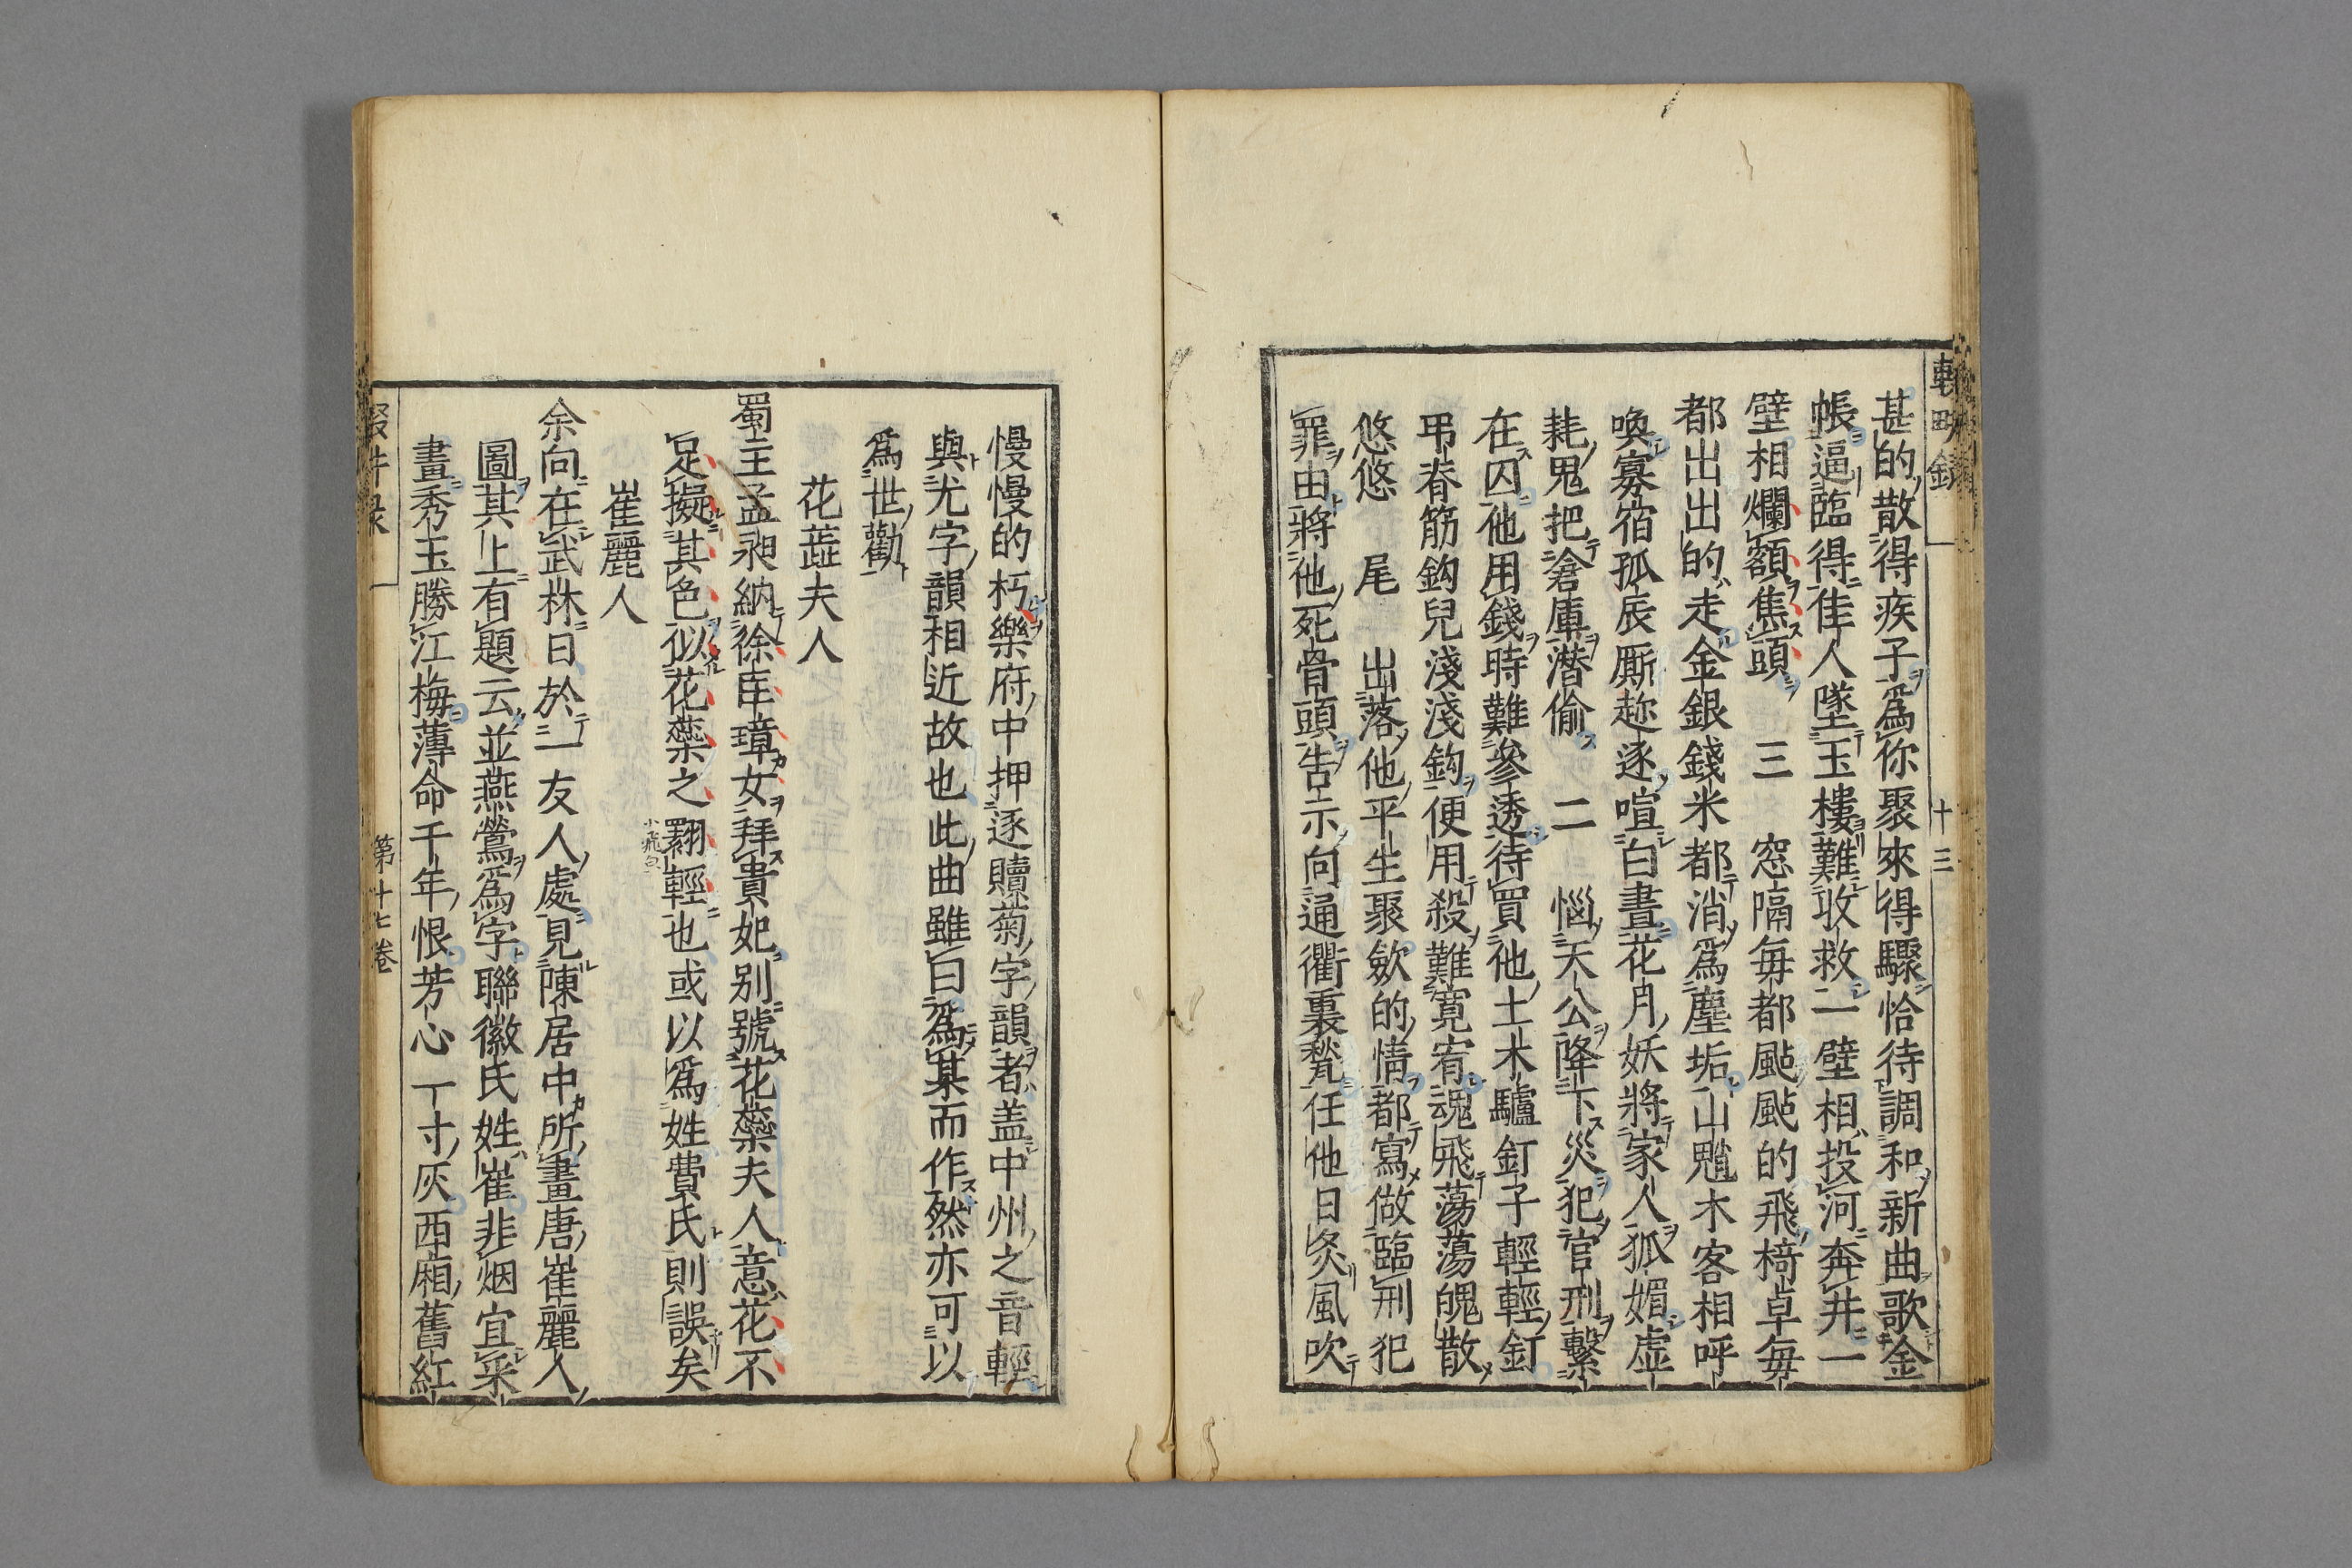 輟畊錄　十三
甚的散得疾子爲你聚來得驟恰待調和新曲歌金
帳逼臨得佳人墜玉樓難收救一壁相投河奔井一
壁相爛額焦頭　三　窓隔每都颭颭的飛椅卓每
都出出的走金銀錢米都消爲塵垢山魈木客相呼
喚寡宿孤辰厮趂逐喧白晝花月妖將家人狐媚虛
耗鬼把滄庫潛偷　二　惱天公降下災犯官刑繫
在囚他用錢時難參透待買他土木驢釘子輕輕釘
弔脊筋鈎兒淺淺鈎便用殺難寬宥魂飛蕩蕩魄散
悠悠　尾　出落他平生聚歛的情都寫做臨刑犯
罪由將他死骨頭告示向通衢裏甃任他日炙風吹
慢慢的朽樂府中押逐贖菊字韻者盖中州之音輕
與尤字韻相近故也此曲雖曰爲某而作然亦可以
爲世勸
花蘂夫人
蜀主孟昶納徐匡璋女拜貴妃别號花蘂夫人意花不
足擬其色似花蘂之翾輕也或以爲姓費氏則誤矣
小飛皃
崔麗人
余向在武林日於一友人處見陳居中所畫唐崔麗人
圖其上有題云並燕鶯爲字聯徽氏姓崔非烟宜采
畫秀玉勝江梅薄命千年恨芳心一寸灰西廂舊紅
輟畊录　第十七卷